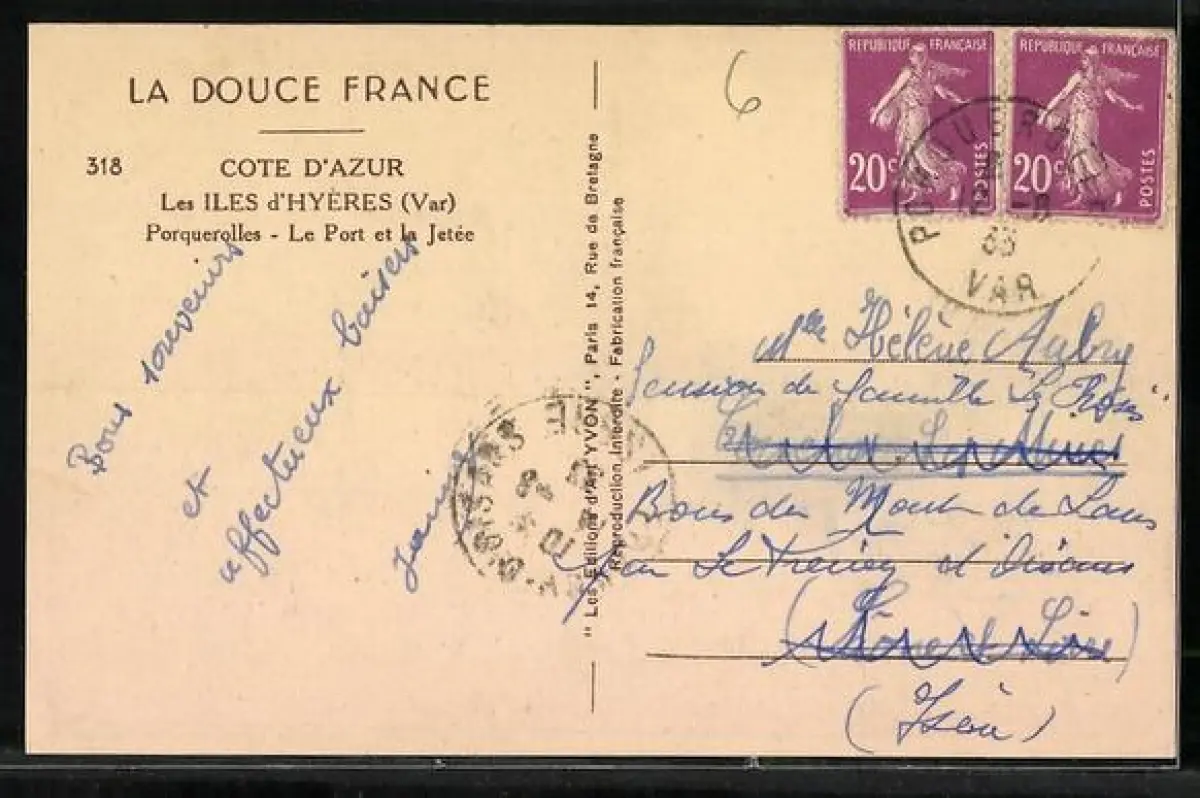 LA DOUCE FRANCE
318
COTE D'AZUR
Les ILES d'HYÈRES (Var)
Porquerolles - Le Port et la Jetée
Bons souvenirs
et
affectueux baisers
" Les Editions d'Art YVON ", Paris 14, Rue de Bretagne
Reproduction Interdite - Fabrication française
6
REPUBLIQUE FRANÇAISE
20c
POSTES
REPUBLIQUE FRANÇAISE
20c
POSTES
VAR
Mlle Hélène Aubry
Pension de famille
Bons du Mont de Lans
et Oisans
(Isère)